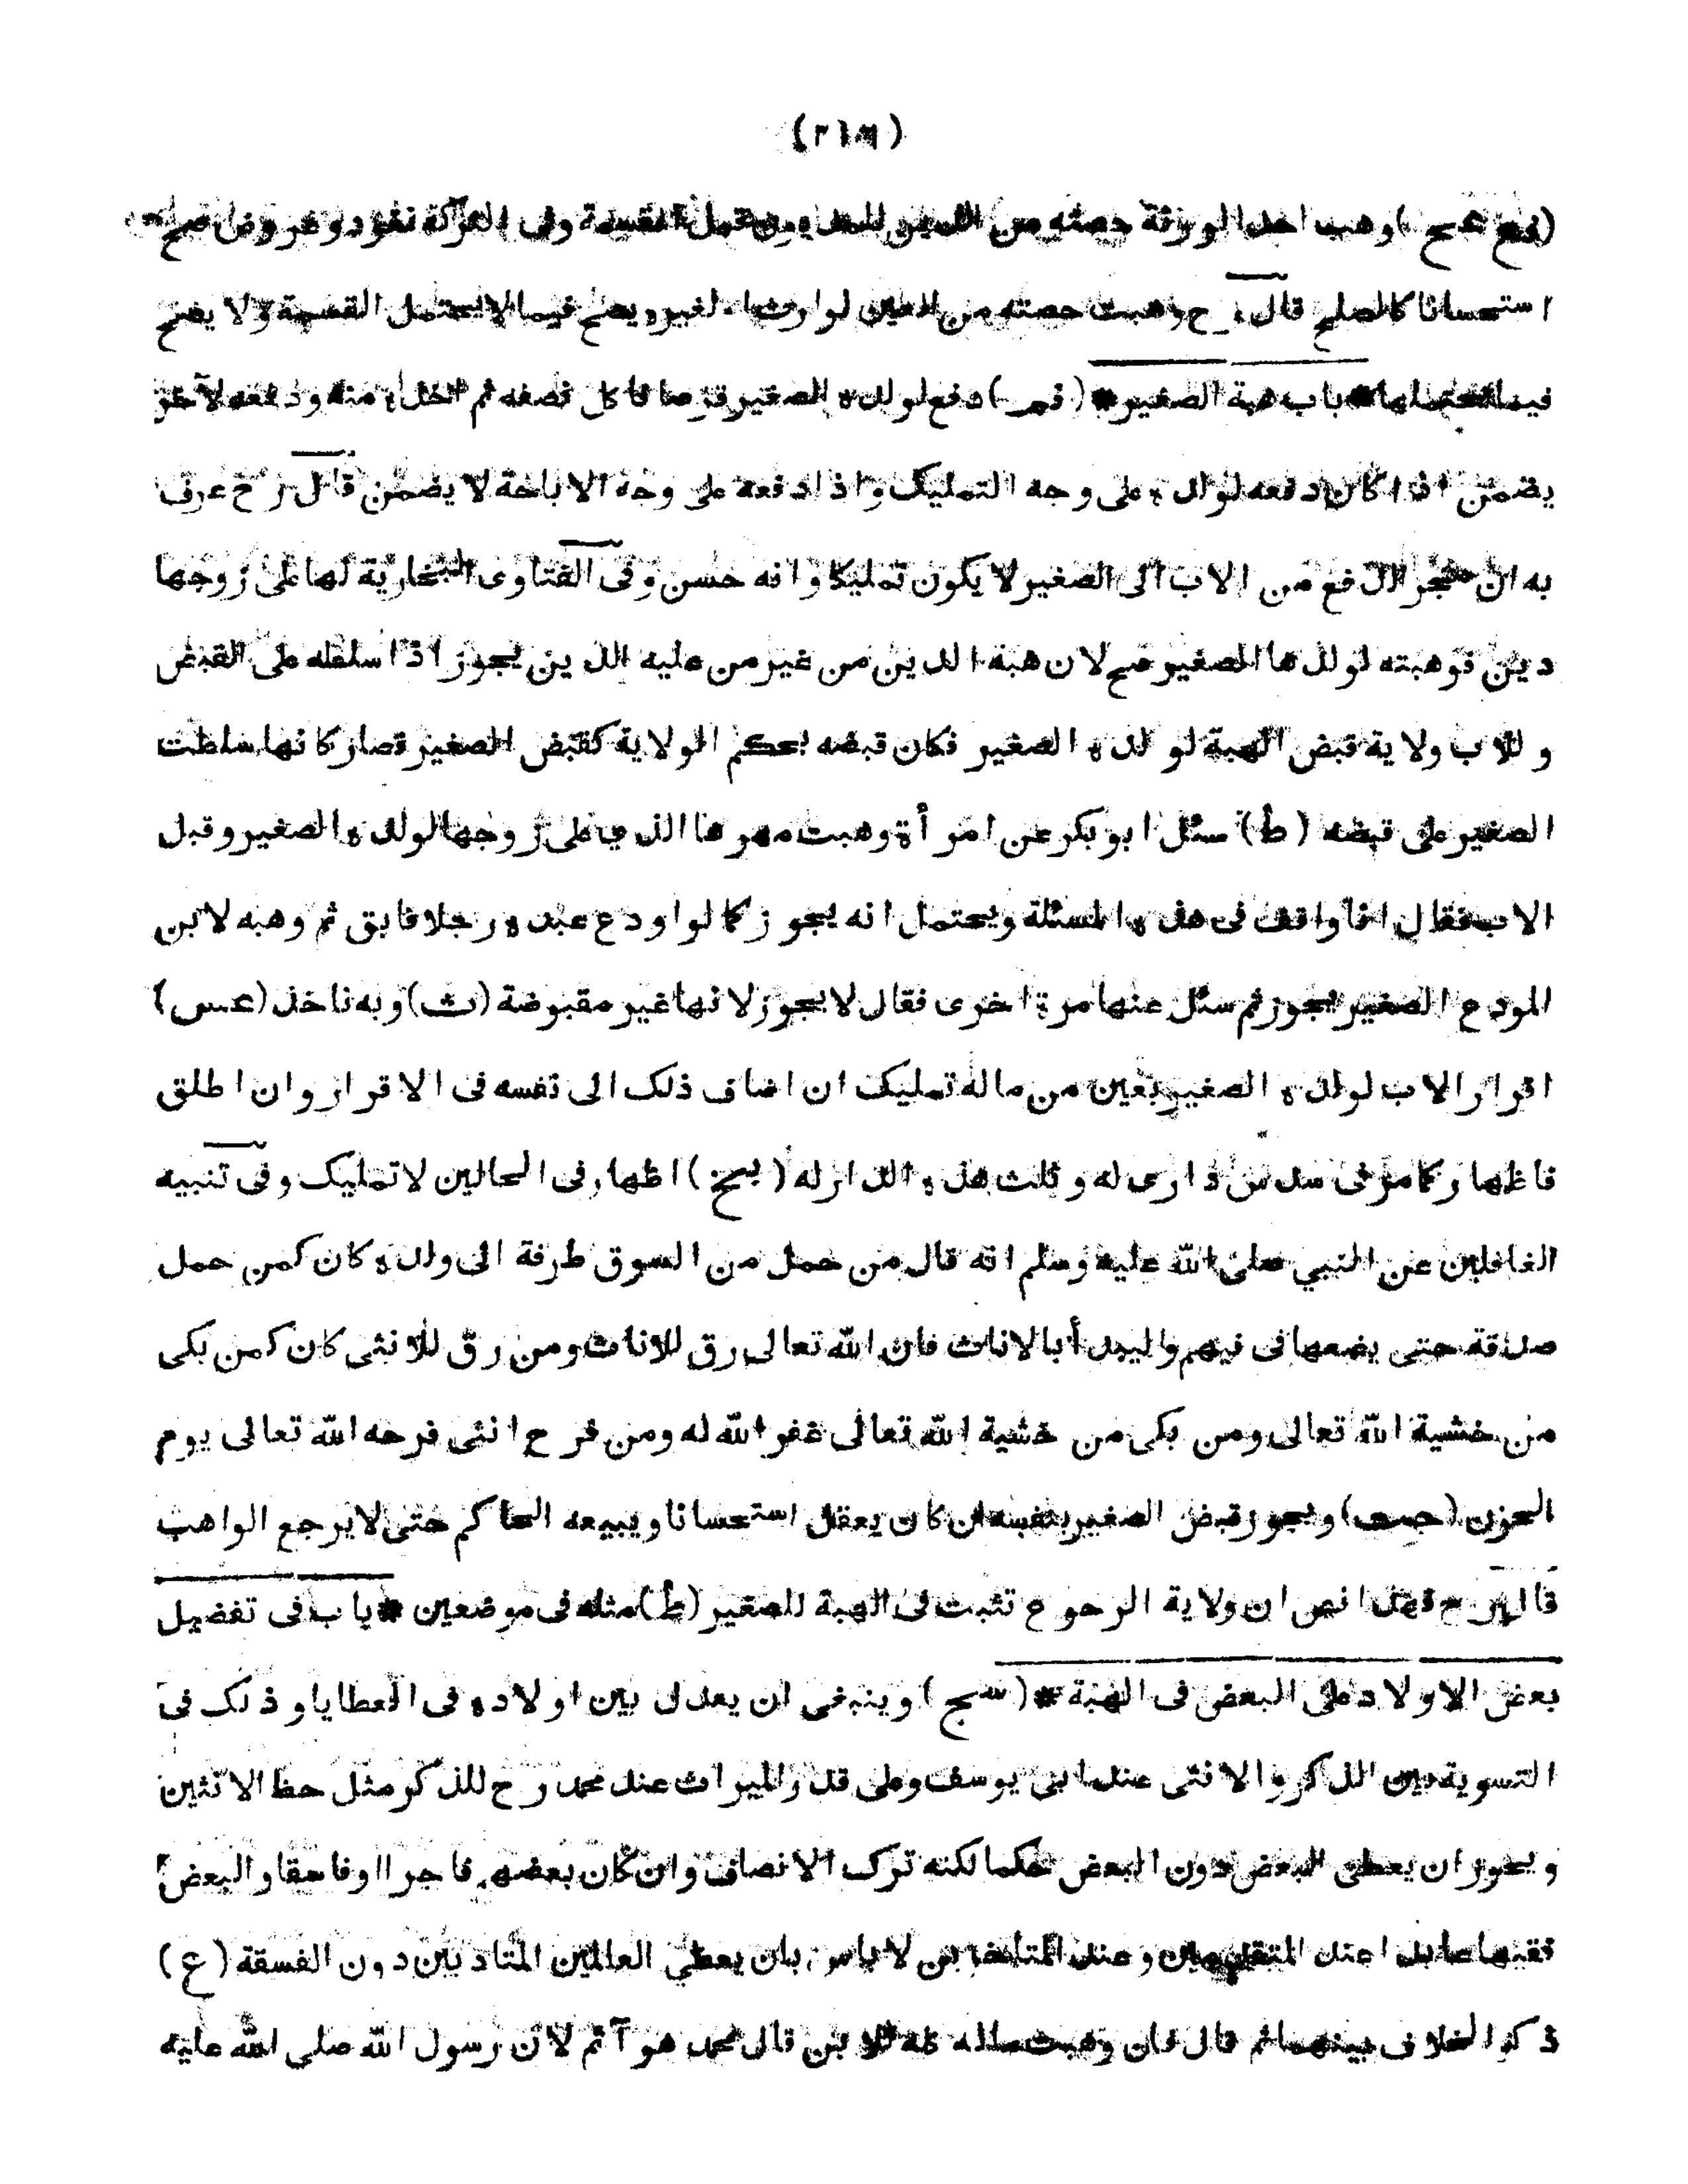 وهب احد الورثة حصته من وفى التركة نقود وعروض صح
استحسانا كالصلح قال رح وهبت حصته من العين لوارث او لغيره يصح فيما لا يحتمل القسمة ولا يصح
فيما يحتملها * باب هبة الصغير * دفع لولده الصغير قرصا فاكل نصفه ثم اخذه منه ودفعه لآخر
يضمن اذا كان دفعه لولده على وجه التمليك واذا دفعه على وجه الاباحة لا يضمن قال رح عرف
به ان مجرد الدفع من الاب الى الصغير لا يكون تمليكا وانه حسن وفى الفتاوى البخارية لها على زوجها
دين فوهبته لولدها الصغير صح لان هبة الدين من غير من عليه الدين يجوز اذا سلطه على القبض
وللاب ولاية قبض الهبة لولده الصغير فكان قبضه بحكم الولاية كقبض الصغير فصار كانها سلطت
الصغير على قبضه (ط) سئل ابوبكر عن امرأة وهبت مهرها الذي على زوجها لولده الصغير وقبل
الاب فقال انا واقف فى هذه المسئلة ويحتمل انه يجوز كما لو اودع عبده رجلا فابق ثم وهبه لابن
المودع الصغير يجوز ثم سئل عنها مرة اخرى فقال لا يجوز لانها غير مقبوضة (ث) وبه ناخذ (عس)
اقرار الاب لولده الصغير بعين من ماله تمليك ان اضاف ذلك الى نفسه فى الاقرار وان اطلق
فاظهار كما مر فى سدس دارى له وثلث هذه الدار له (بخ) اظهار فى الحالين لا تمليك وفى تنبيه
الغافلين عن النبي صلى الله عليه وسلم انه قال من حمل من السوق طرفة الى ولده كان كمن حمل
صدقة حتى يضعها فى فيهم وليبدأ بالاناث فان الله تعالى رق للاناث ومن رق للانثى كان كمن بكى
من خشية الله تعالى ومن بكى من خشية الله تعالى غفر الله له ومن فرح انثى فرحه الله تعالى يوم
الحزن ويجوز قبض الصغير بنفسه ان كان يعقل استحسانا ويبيعه الحاكم حتى لا يرجع الواهب
قال رح فهذا نص ان ولاية الرجوع تثبت فى الهبة للصغير (ط) مثله فى موضعين * باب فى تفضيل
بعض الاولاد على البعض فى الهبة * وينبغى ان يعدل بين اولاده فى العطايا وذلك فى
التسوية بين الذكر والانثى عند ابى يوسف وعلى قدر الميراث عند محمد رح للذكر مثل حظ الانثيين
ويجوز ان يعطى البعض دون البعض حكما لكنه ترك الانصاف وان كان بعضهم فاجرا او فاسقا والبعض
فقيها عابدا عند المتقدمين وعند المتاخرين لا باس بان يعطي العالمين المتادبين دون الفسقة (ع)
ذكر الخلاف بينهما ثم قال فان وهبت ماله كله للابن قال محمد هو آثم لان رسول الله صلى الله عليه